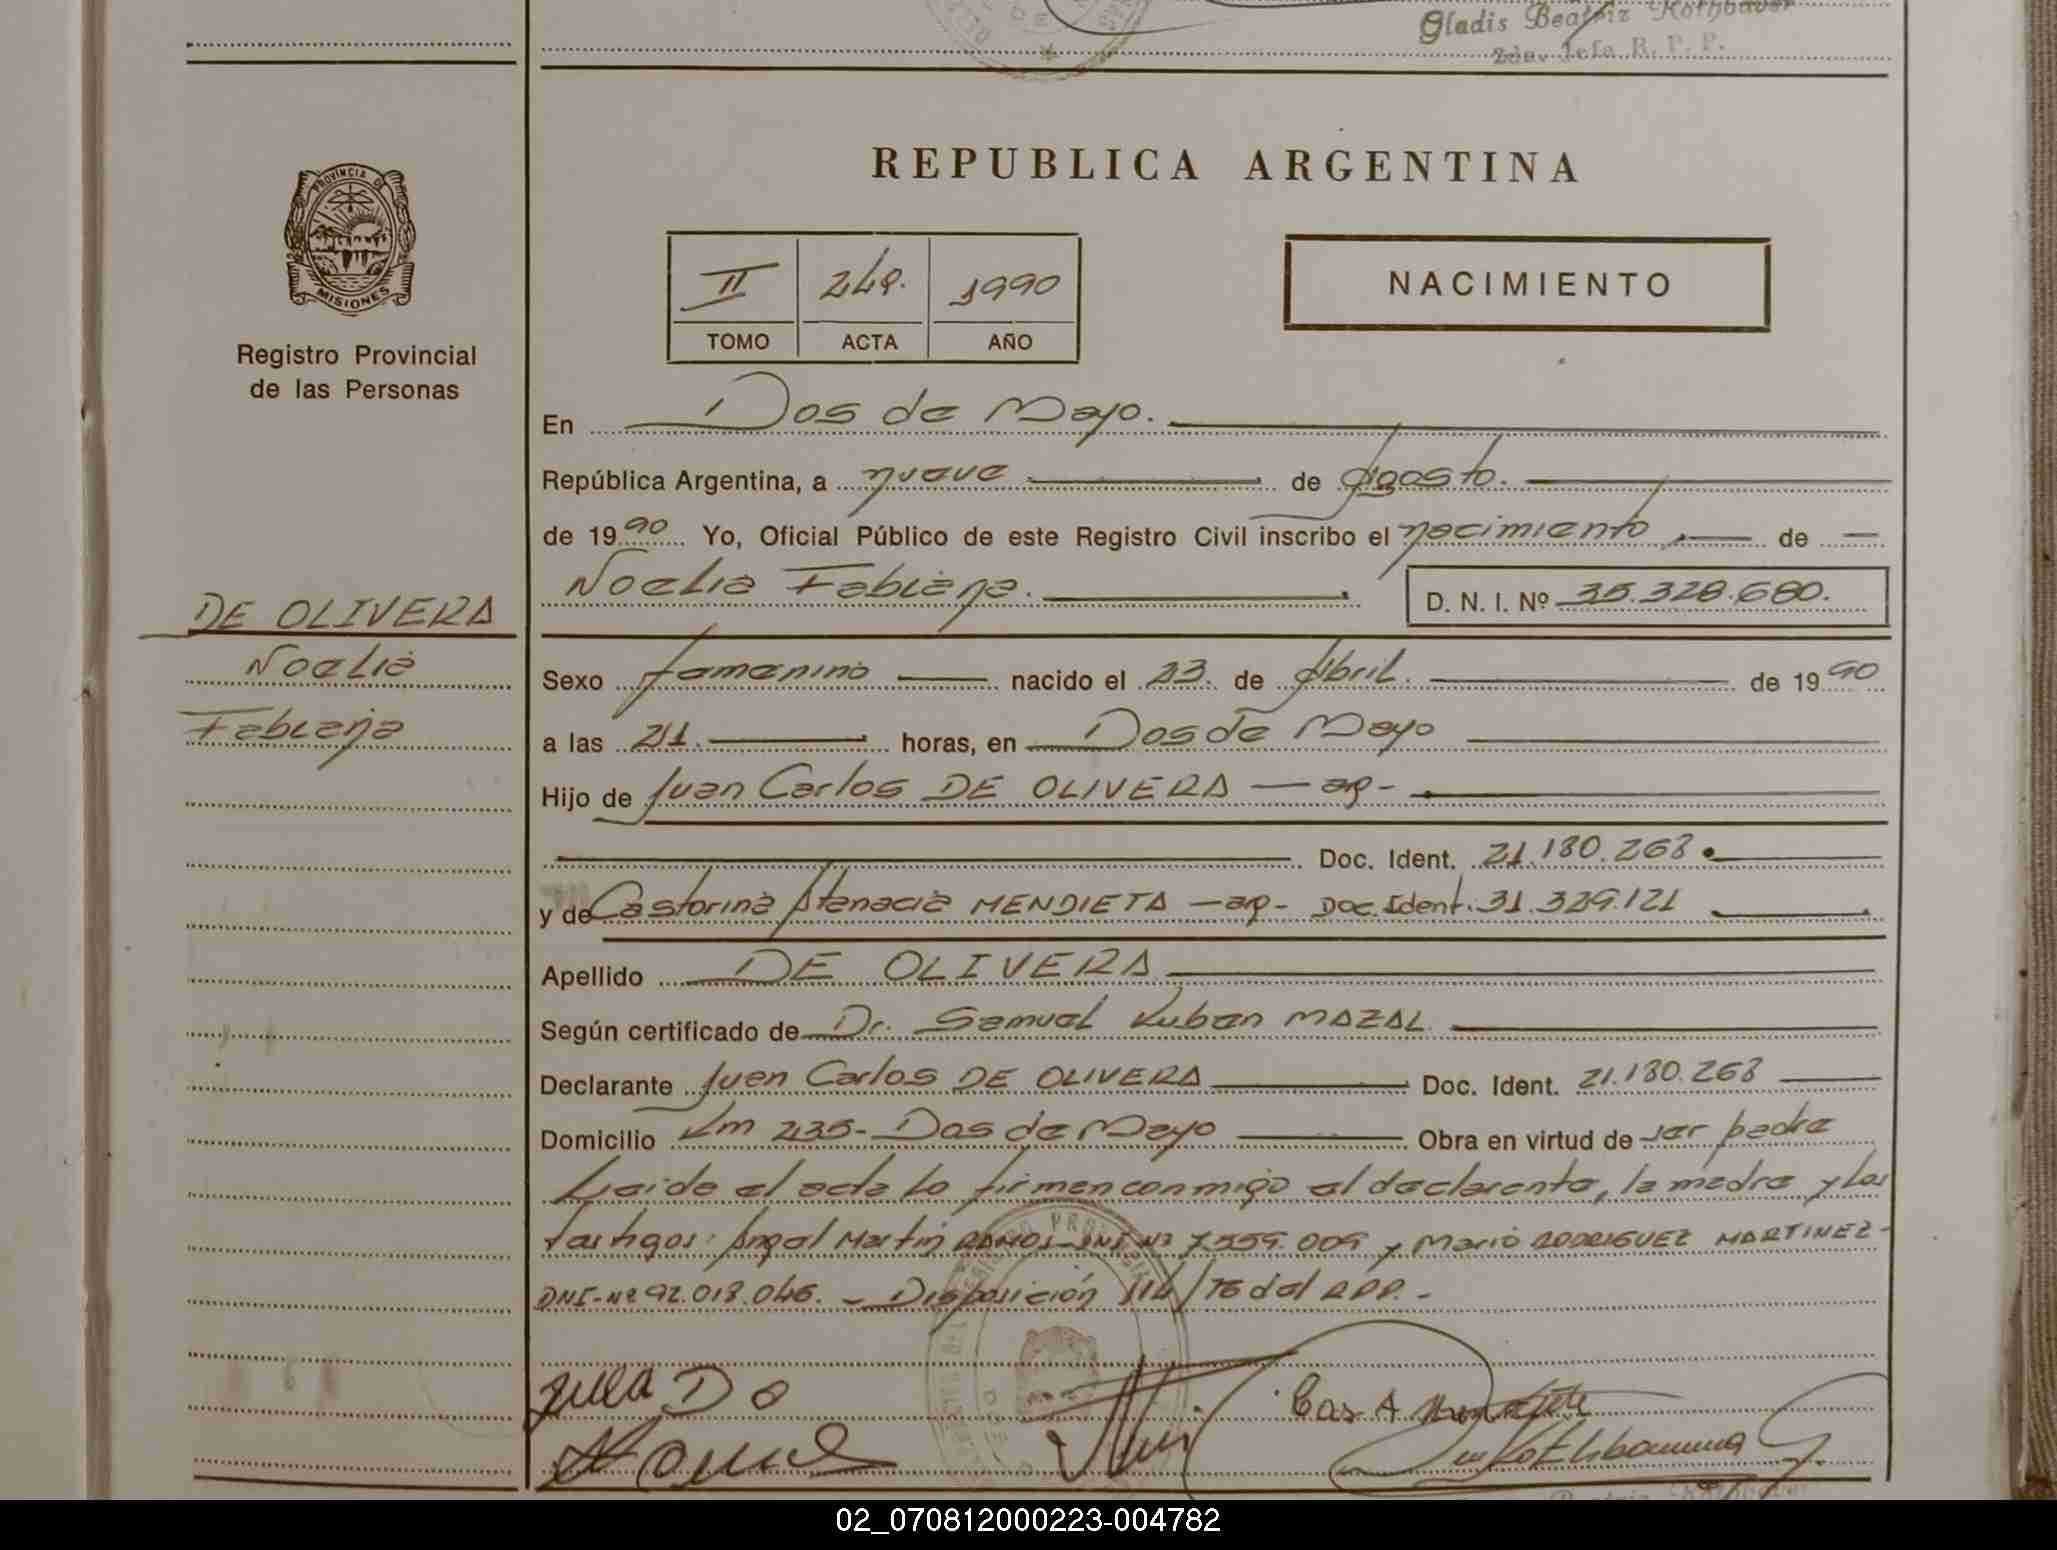 Gladis Beatriz Rothbauer
2da. Jefa R. P. P.
PROVINCIA DE
MISIONES
Registro Provincial
de las Personas
REPUBLICA ARGENTINA
II 248. 1990
TOMO ACTA AÑO
NACIMIENTO
En Dos de Mayo.
República Argentina, a nueve de Agosto.
de 1990 Yo, Oficial Público de este Registro Civil inscribo el nacimiento de
Noelia Fabiana. D. N. I. Nº 35.328.680.
DE OLIVERA
Noelia
Fabiana
Sexo femenino nacido el 23. de Abril. de 1990
a las 21. horas, en Dos de Mayo
Hijo de Juan Carlos DE OLIVERA — ar -
Doc. Ident. 21.180.268
y de Castorina Atanacia MENDIETA - ar - Doc. Ident. 31.329.121
Apellido DE OLIVERA
Según certificado de Dr. Samuel Kuban MAZAL
Declarante Juan Carlos DE OLIVERA Doc. Ident. 21.180.268
Domicilio Km 235 - Dos de Mayo Obra en virtud de ser padre
Leida el acta lo firman conmigo el declarante, la madre y los
testigos: Angel Martin RAMOS - DNI Nº 7.559.009 y Mario RODRIGUEZ MARTINEZ -
DNI - Nº 92.018.046. - Disposición 114/75 del RPP. -
Cas A Mendieta
02_070812000223-004782